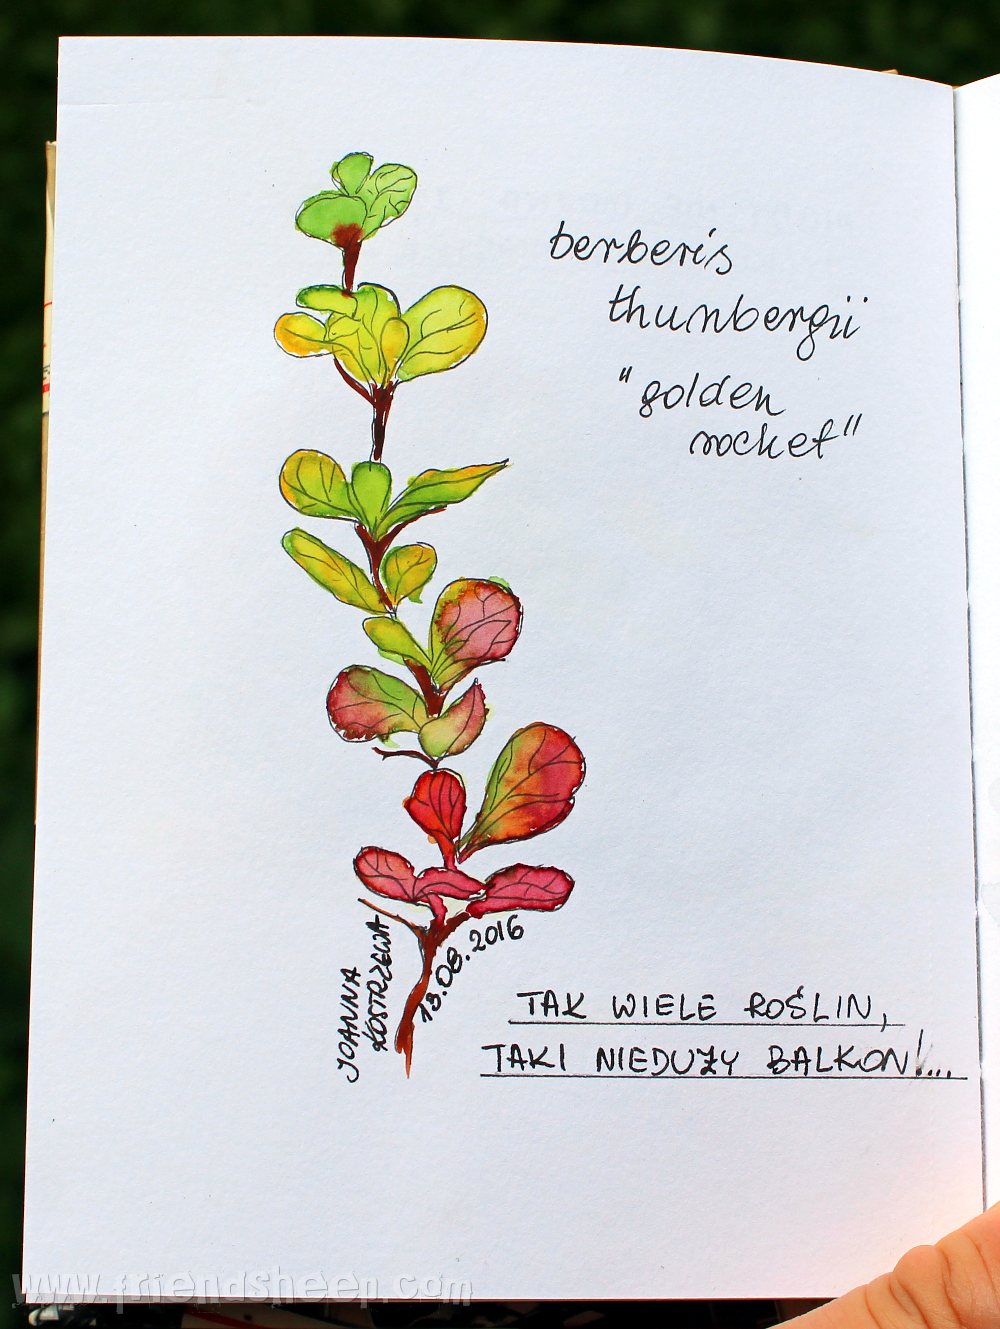 berberis
thunbergii
"golden
rocket"
JOANNA
KOSTRZEWA
18.08.2016
TAK WIELE ROŚLIN,
TAKI NIEDUŻY BALKON!...
www.friendsheep.com